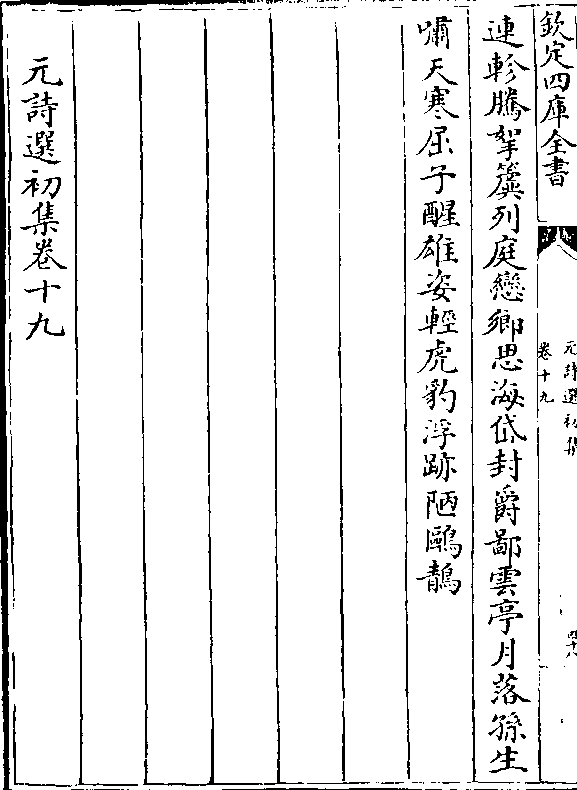 欽定四庫全書
元詩選初集
卷十九
四十八
連軫騰拏簴列庭戀鄉思海岱封爵鄙雲亭月落孫生
嘯天寒屈子醒雄姿輕虎豹浮跡陋鷗鶄
元詩選初集卷十九